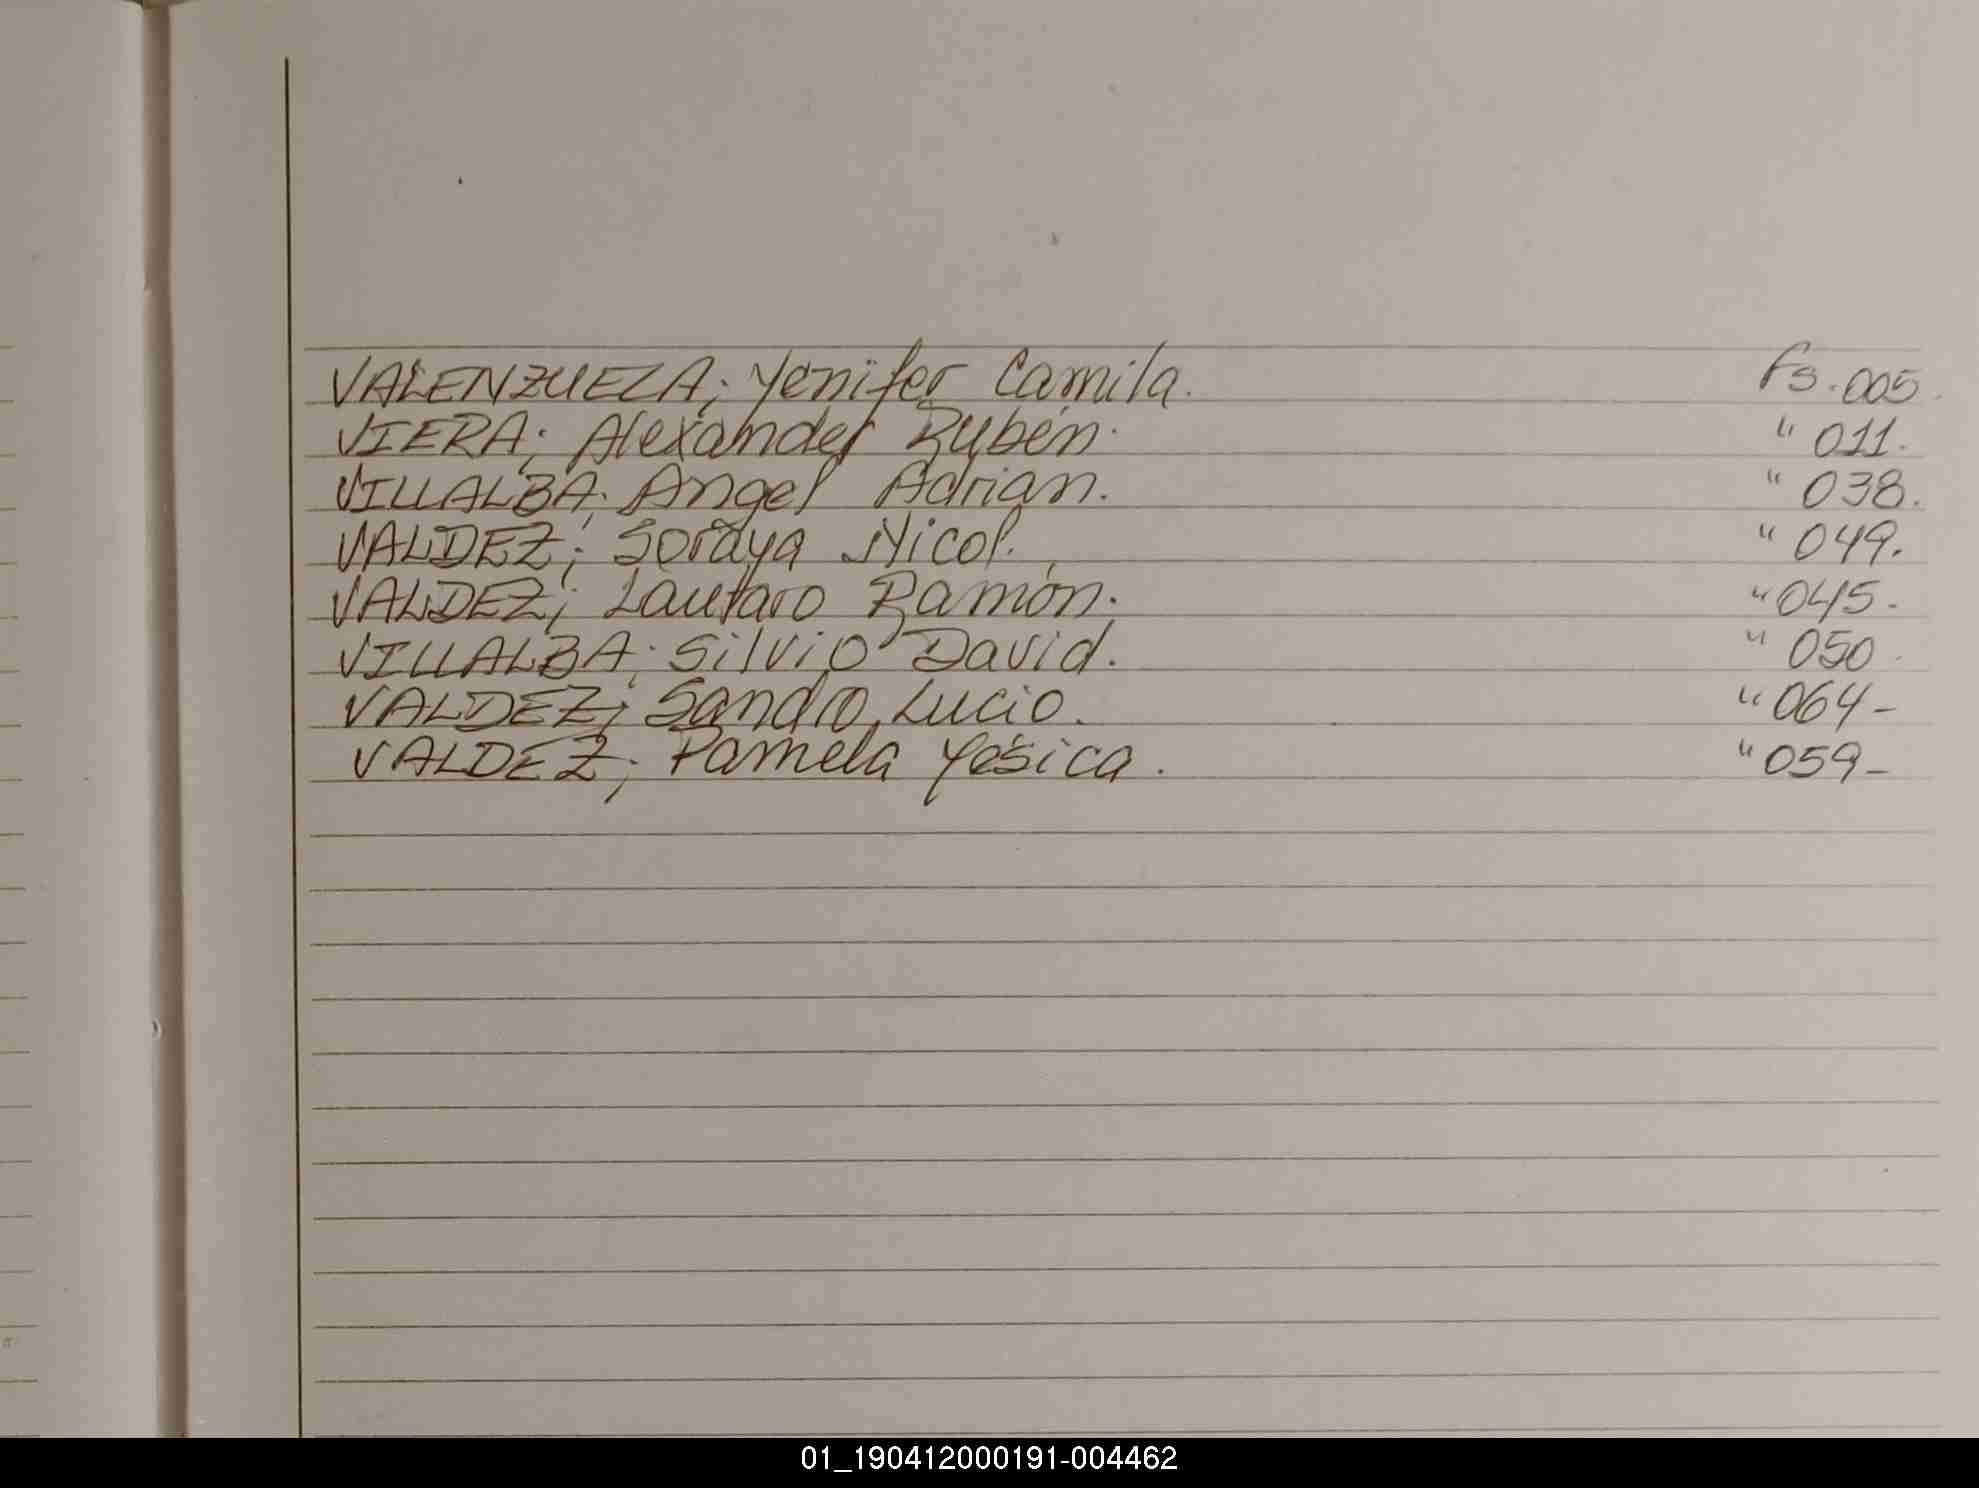 VALENZUELA; Yenifer Camila. Fs. 005.
VIERA; Alexander Rubén. " 011.
VILLALBA; Angel Adrian. " 038.
VALDEZ; Soraya Nicol. " 049.
VALDEZ; Lautaro Ramón. " 045.
VILLALBA; Silvio David. " 050.
VALDEZ; Sandro Lucio. " 064-
VALDEZ; Pamela Yesica. " 059-
01_190412000191-004462